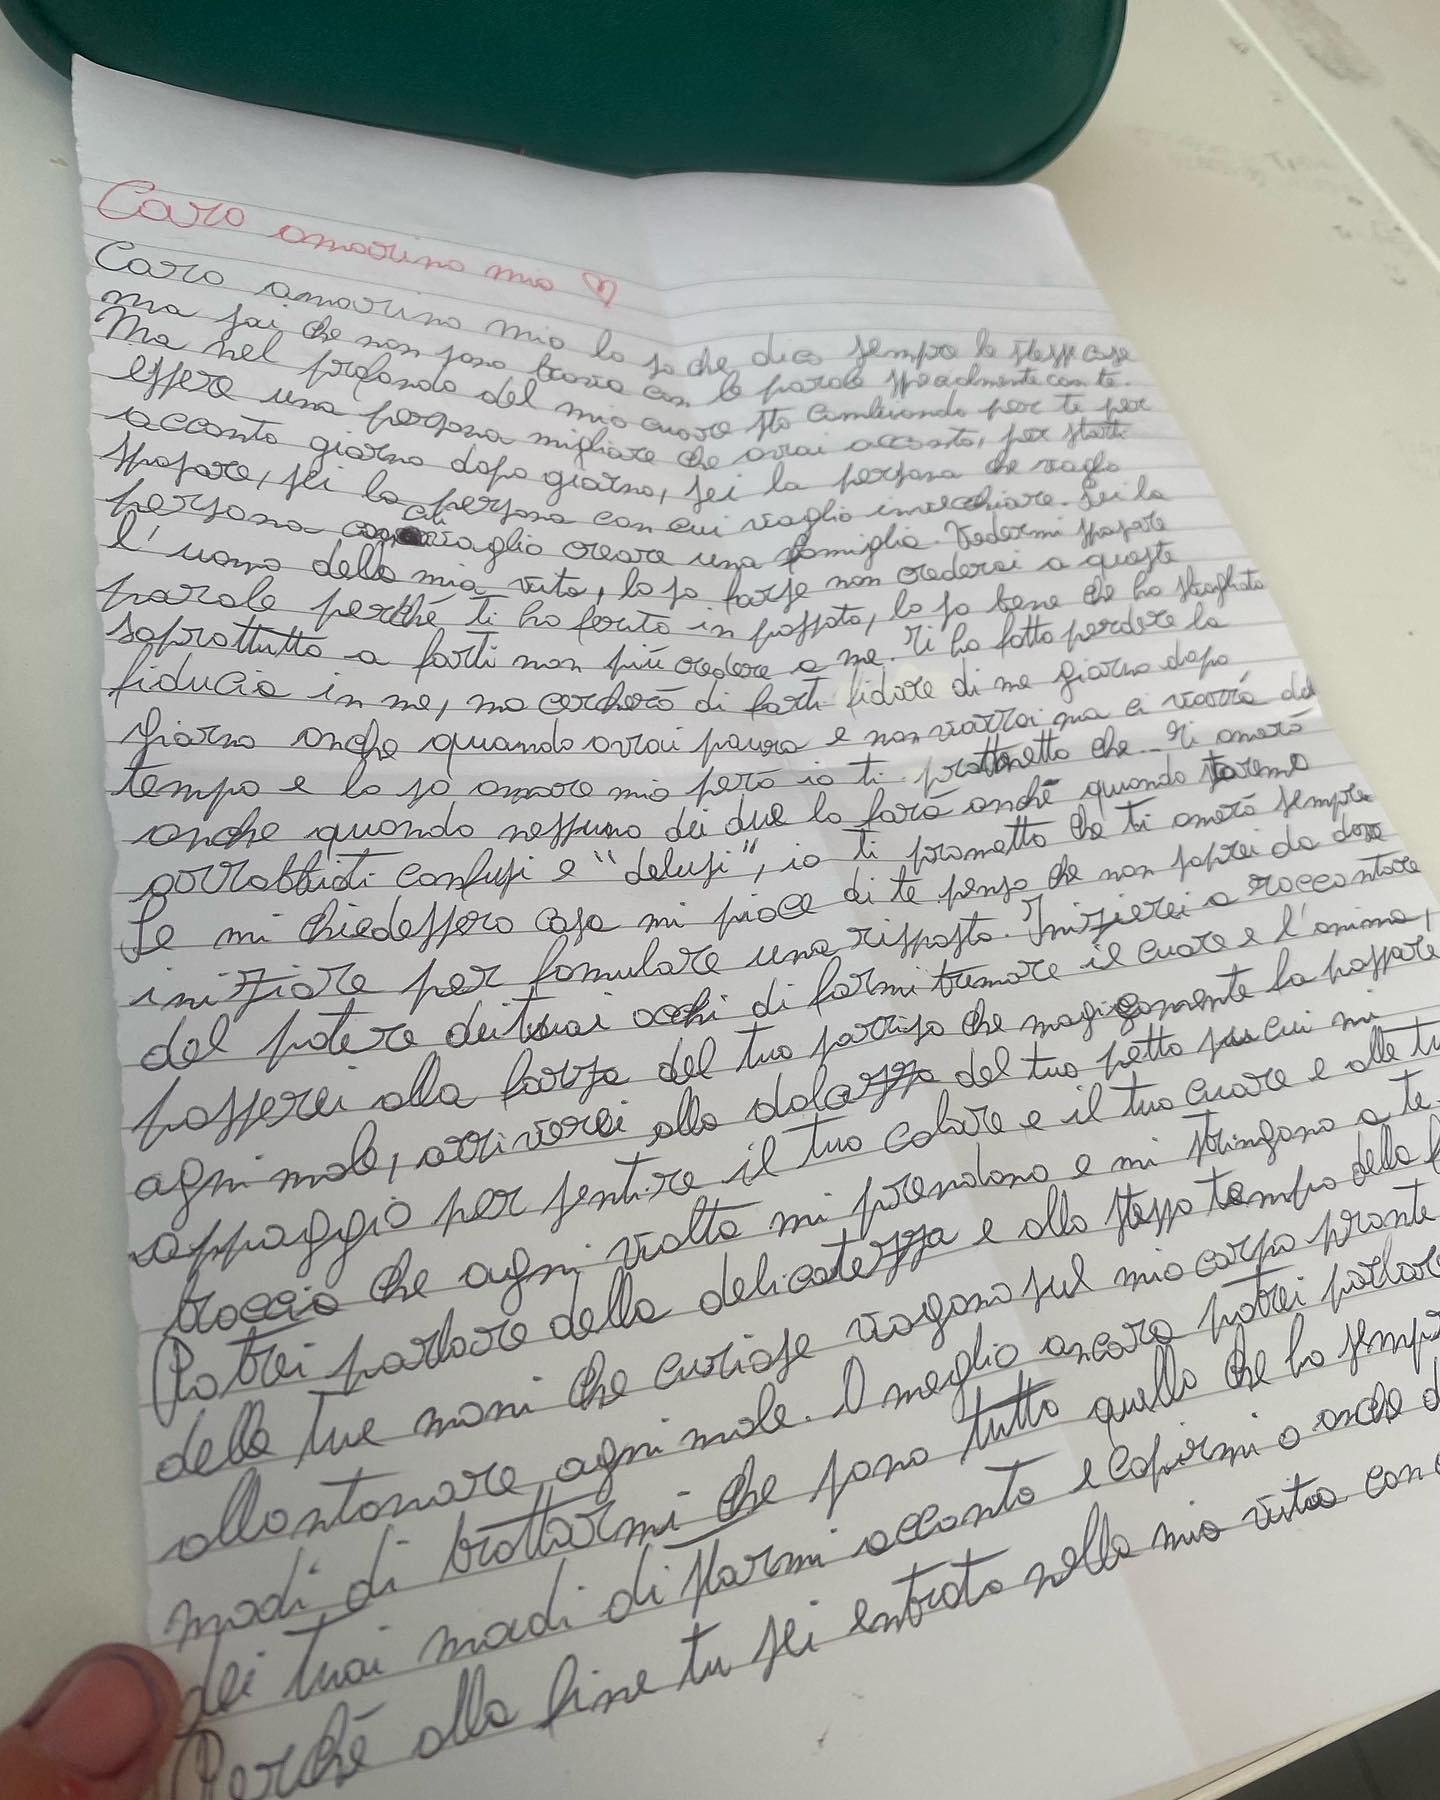 Caro amorino mio ♡
Caro amorino mio lo so che dico sempre le stesse cose
ma sai che non sono brava con le parole specialmente con te.
Ma nel profondo del mio cuore sto cambiando per te per
essere una persona migliore che avrai accanto, per starti
accanto giorno dopo giorno, sei la persona che voglio
sposare, sei la persona con cui voglio invecchiare. Sei la
persona con cui voglio creare una famiglia. Vedermi sposare
l'uomo della mia vita, lo so forse non crederai a queste
parole perché ti ho ferito in passato, lo so bene che ho sbagliato
soprattutto a farti non più credere a me. Ti ho fatto perdere la
fiducia in me, ma cercherò di farti fidare di me giorno dopo
giorno anche quando avrai paura e non vorrai ma ci vorrà del
tempo e lo so amore mio però io ti prometto che.. Ti amerò
anche quando nessuno dei due lo farà anche quando saremo
arrabbiati confusi e "delusi", io ti prometto che ti amerò sempre
Se mi chiedessero cosa mi piace di te penso che non saprei da dove
iniziare per fomulare una risposta. Inizierei a raccontare
del potere dei tuoi occhi di farmi tremare il cuore e l'anima,
passerei alla forza del tuo sorriso che magicamente fa passare
ogni male, arriverei alla dolcezza del tuo petto su cui mi
appoggio per sentire il tuo calore e il tuo cuore e alle tu
braccia che ogni volta mi prendono e mi stringono a te.
Potrei parlare della delicatezza e allo stesso tempo della
delle tue mani che curiose vagano sul mio corpo pronte
allontanare ogni male. O meglio ancora potrei parlare
modi di trattarmi che sono tutto quello che ho sempr
dei tuoi modi di starmi accanto e capirmi o anche d
Perché alla fine tu sei entrato nella mia vita con